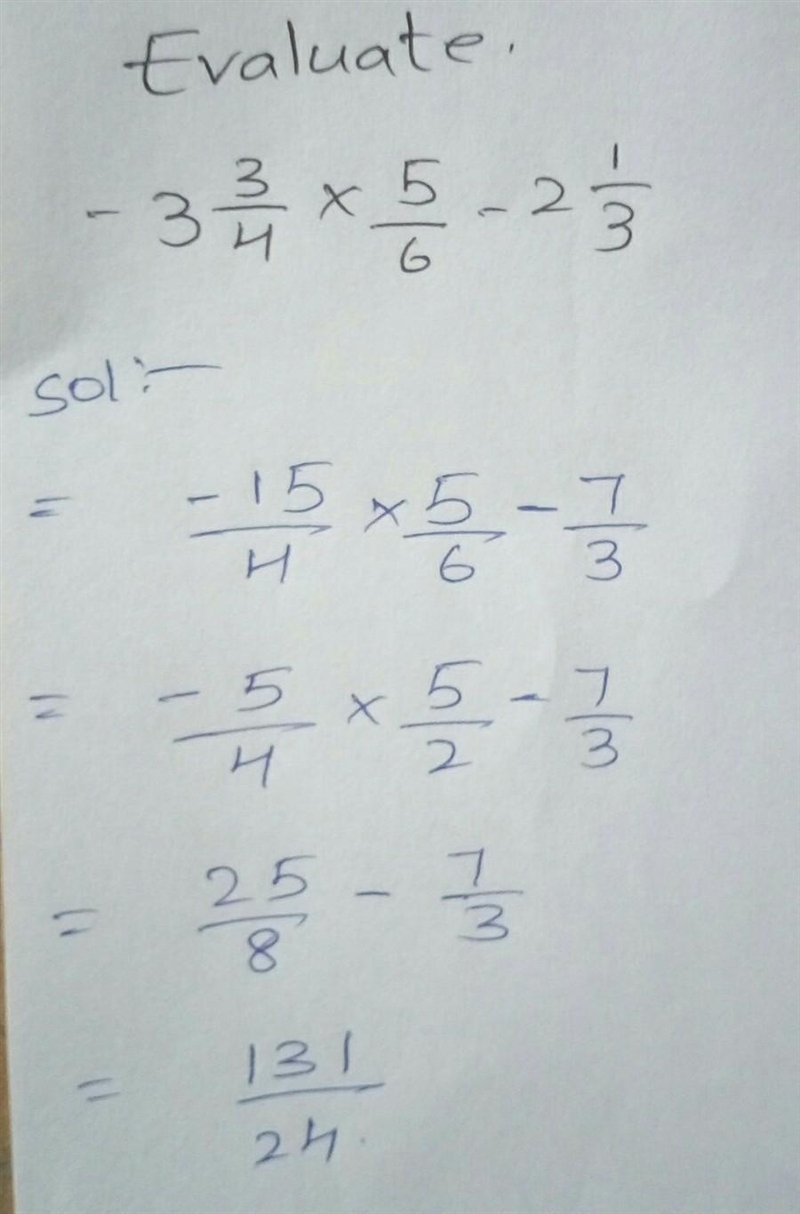 Evaluate.
- 3 3/4 × 5/6 - 2 1/3
Sol:-
= -15/4 × 5/6 - 7/3
= -5/4 × 5/2 - 7/3
= 25/8 - 7/3
= 131/24.